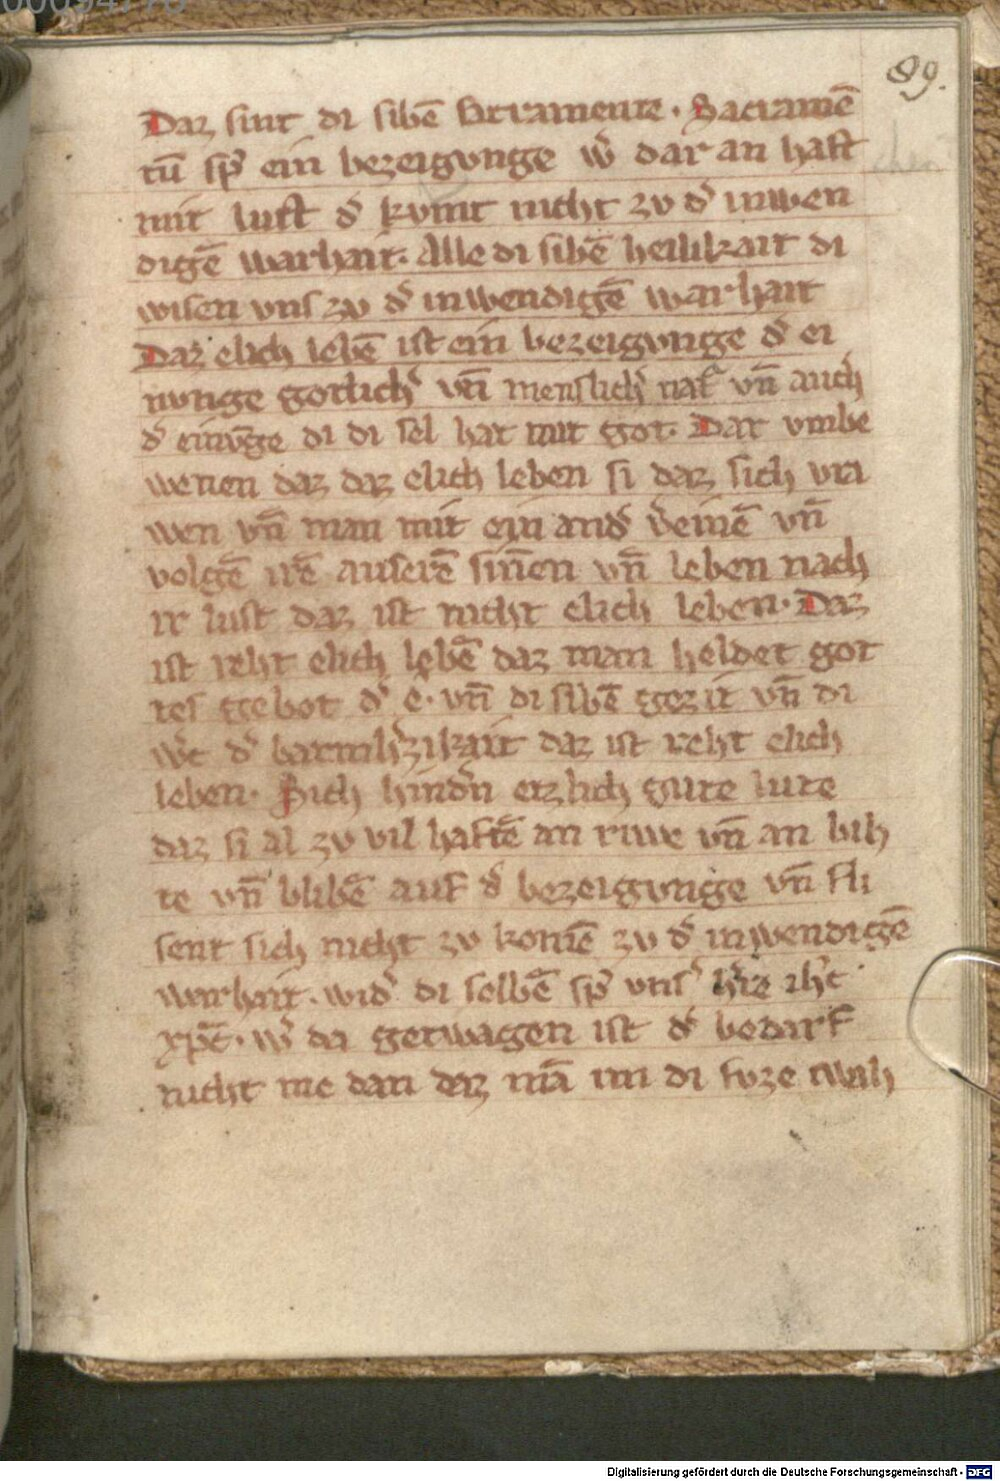 89.
Daz sint di sibē sacramente · Sacramē
tū sp̄ ein bezeigvnge w̾ dar an haft
mit luft d̾ kvmt nicht zv d̾ inwen
digē warhait. Alle di sibē heilikait di
wisen vns zv d̾ inwendigē warhait
Daz elich lebē ist ein bezeigvnge d̾ ei
nvnge gotlich̾ vn̄ menslich̾ nat̾ vn̄ auch
d̾ einv̄ge di di sel hat mit got. Dar vmbe
wenen daz daz elich leben si daz sich vra
wen vn̄ man mit ein and̾ v̾einē vn̄
volgē irē auserē sin̄en vn̄ leben nach
ir lust daz ist nicht elich leben. Daz
ist reht elich lebē daz man heldet got
tes gebot d̾ e. vn̄ di sibē gezit vn̄ di
w̾c d̾ barmh̾zikait daz ist reht elich
leben. Sich hind̾n etzlich gute lute
daz si al zv vil haftē an riwe vn̄ an bih
te vn̄ blibē auf d̾ bezeigvnge vn̄ fli
sent sich nicht zv komē zv d̾ inwendigē
warhait. wid̾ di selbē sp̄ vns̾ h̾re ih̄c
xp̄c. w̾ da getwagen ist d̾ bedarf
nicht me dan daz mā im di fvze twah
Digitalisierung gefördert durch die Deutsche Forschungsgemeinschaft - DFG